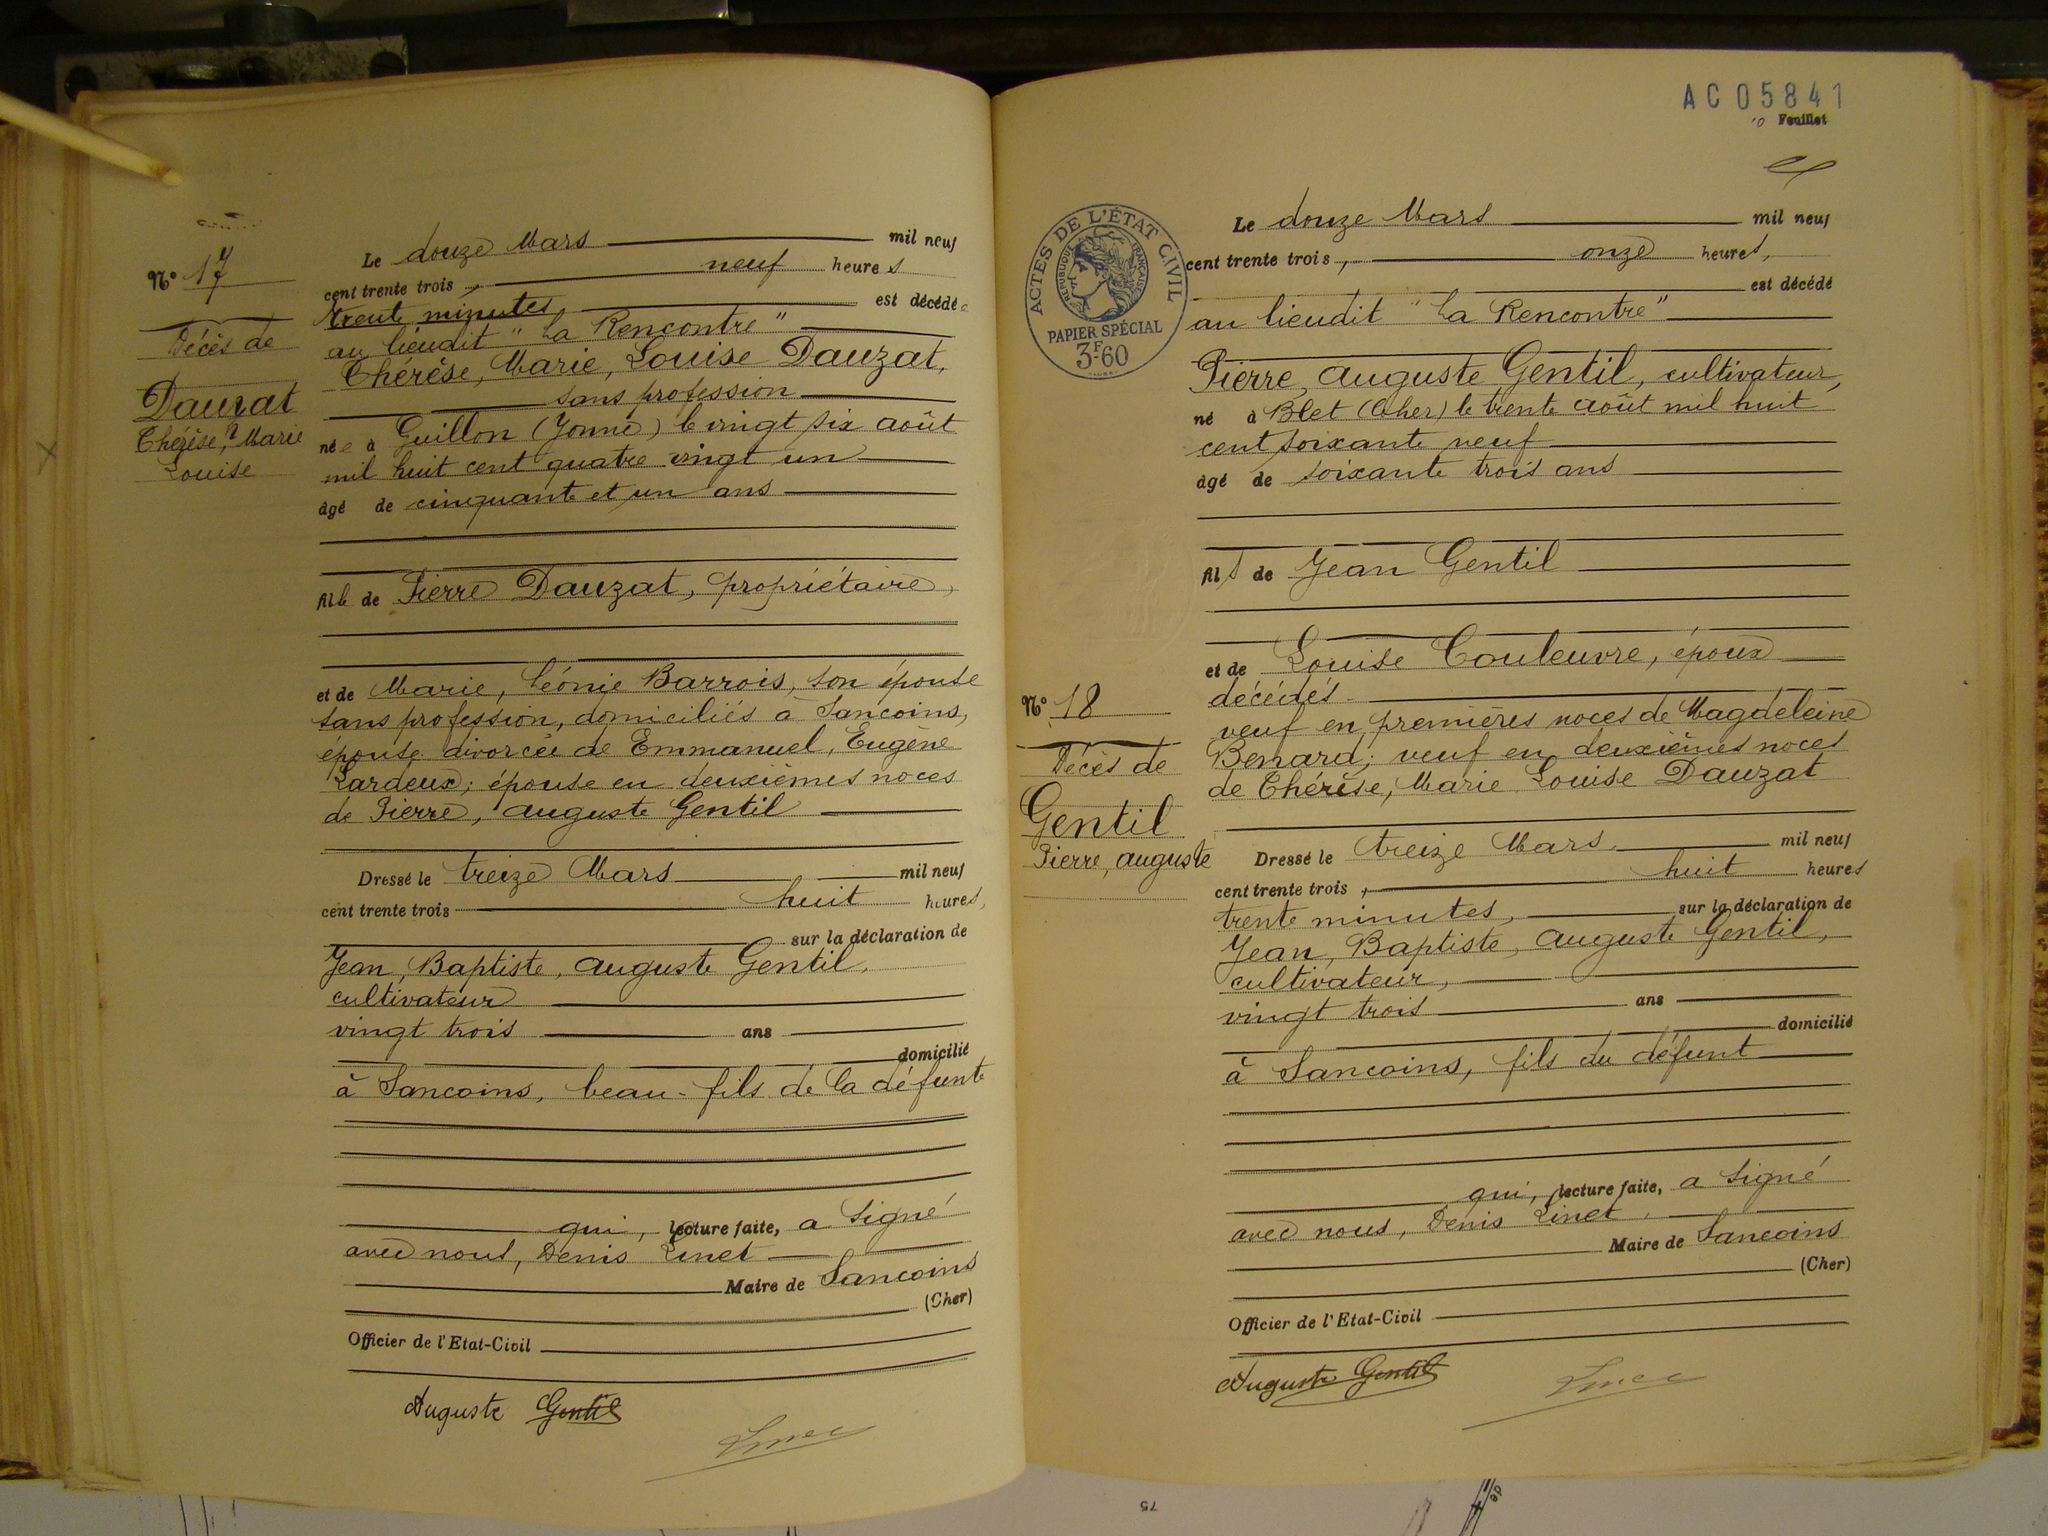 N° 17
Décès de
Dauzat
Thérèse, Marie
Louise
Le douze Mars mil neuf
cent trente trois, neuf heures
trente minutes est décédée
au lieudit "La Rencontre"
Thérèse, Marie, Louise Dauzat,
sans profession
née à Guillon (Yonne) le vingt six août
mil huit cent quatre vingt un
âgé de cinquante et un ans
fille de Pierre Dauzat, propriétaire,
et de Marie, Léonie Barrois, son épouse
sans profession, domiciliés à Sancoins,
épouse divorcée de Emmanuel, Eugène
Lardeux; épouse en deuxièmes noces
de Pierre, Auguste Gentil
Dressé le treize Mars mil neuf
cent trente trois huit heures,
sur la déclaration de
Jean, Baptiste, Auguste Gentil,
cultivateur
vingt trois ans
domicilié
à Sancoins, beau-fils de la défunte
qui, lecture faite, a signé
avec nous, Denis Linet
Maire de Sancoins
(Cher)
Officier de l'Etat-Civil
Auguste Gentil
AC05841
Feuillet
ACTES DE L'ÉTAT CIVIL
RÉPUBLIQUE FRANÇAISE
PAPIER SPÉCIAL
3F.60
N° 18
Décès de
Gentil
Pierre, Auguste
Le douze Mars mil neuf
cent trente trois, onze heures,
est décédé
au lieudit "La Rencontre"
Pierre, Auguste Gentil, cultivateur,
né à Blet (Cher) le trente août mil huit
cent soixante neuf
âgé de soixante trois ans
fils de Jean Gentil
et de Louise Couleuvre, époux
décédés
veuf en premières noces de Magdeleine
Benard; veuf en deuxièmes noces
de Thérèse, Marie Louise Dauzat
Dressé le treize Mars mil neuf
cent trente trois, huit heures
trente minutes, sur la déclaration de
Jean, Baptiste, Auguste Gentil,
cultivateur,
vingt trois ans
domicilié
à Sancoins, fils du défunt
qui, lecture faite, a signé
avec nous, Denis Linet,
Maire de Sancoins
(Cher)
Officier de l'Etat-Civil
Auguste Gentil
75